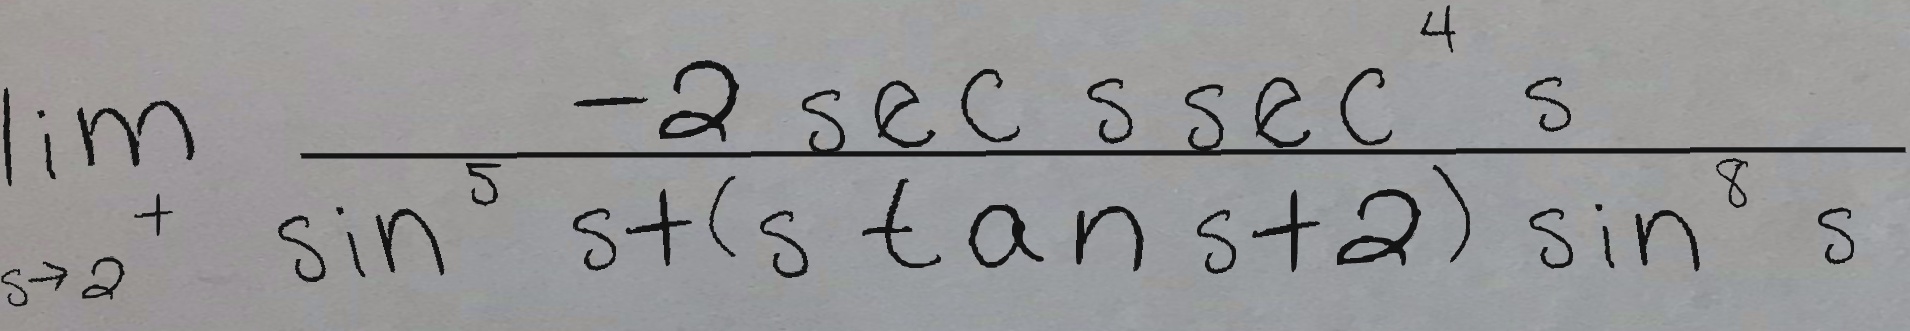 \lim_{s \to 2^+} \frac{-2 \sec s \sec^4 s}{\sin^5 s + (s \tan s + 2) \sin^8 s}